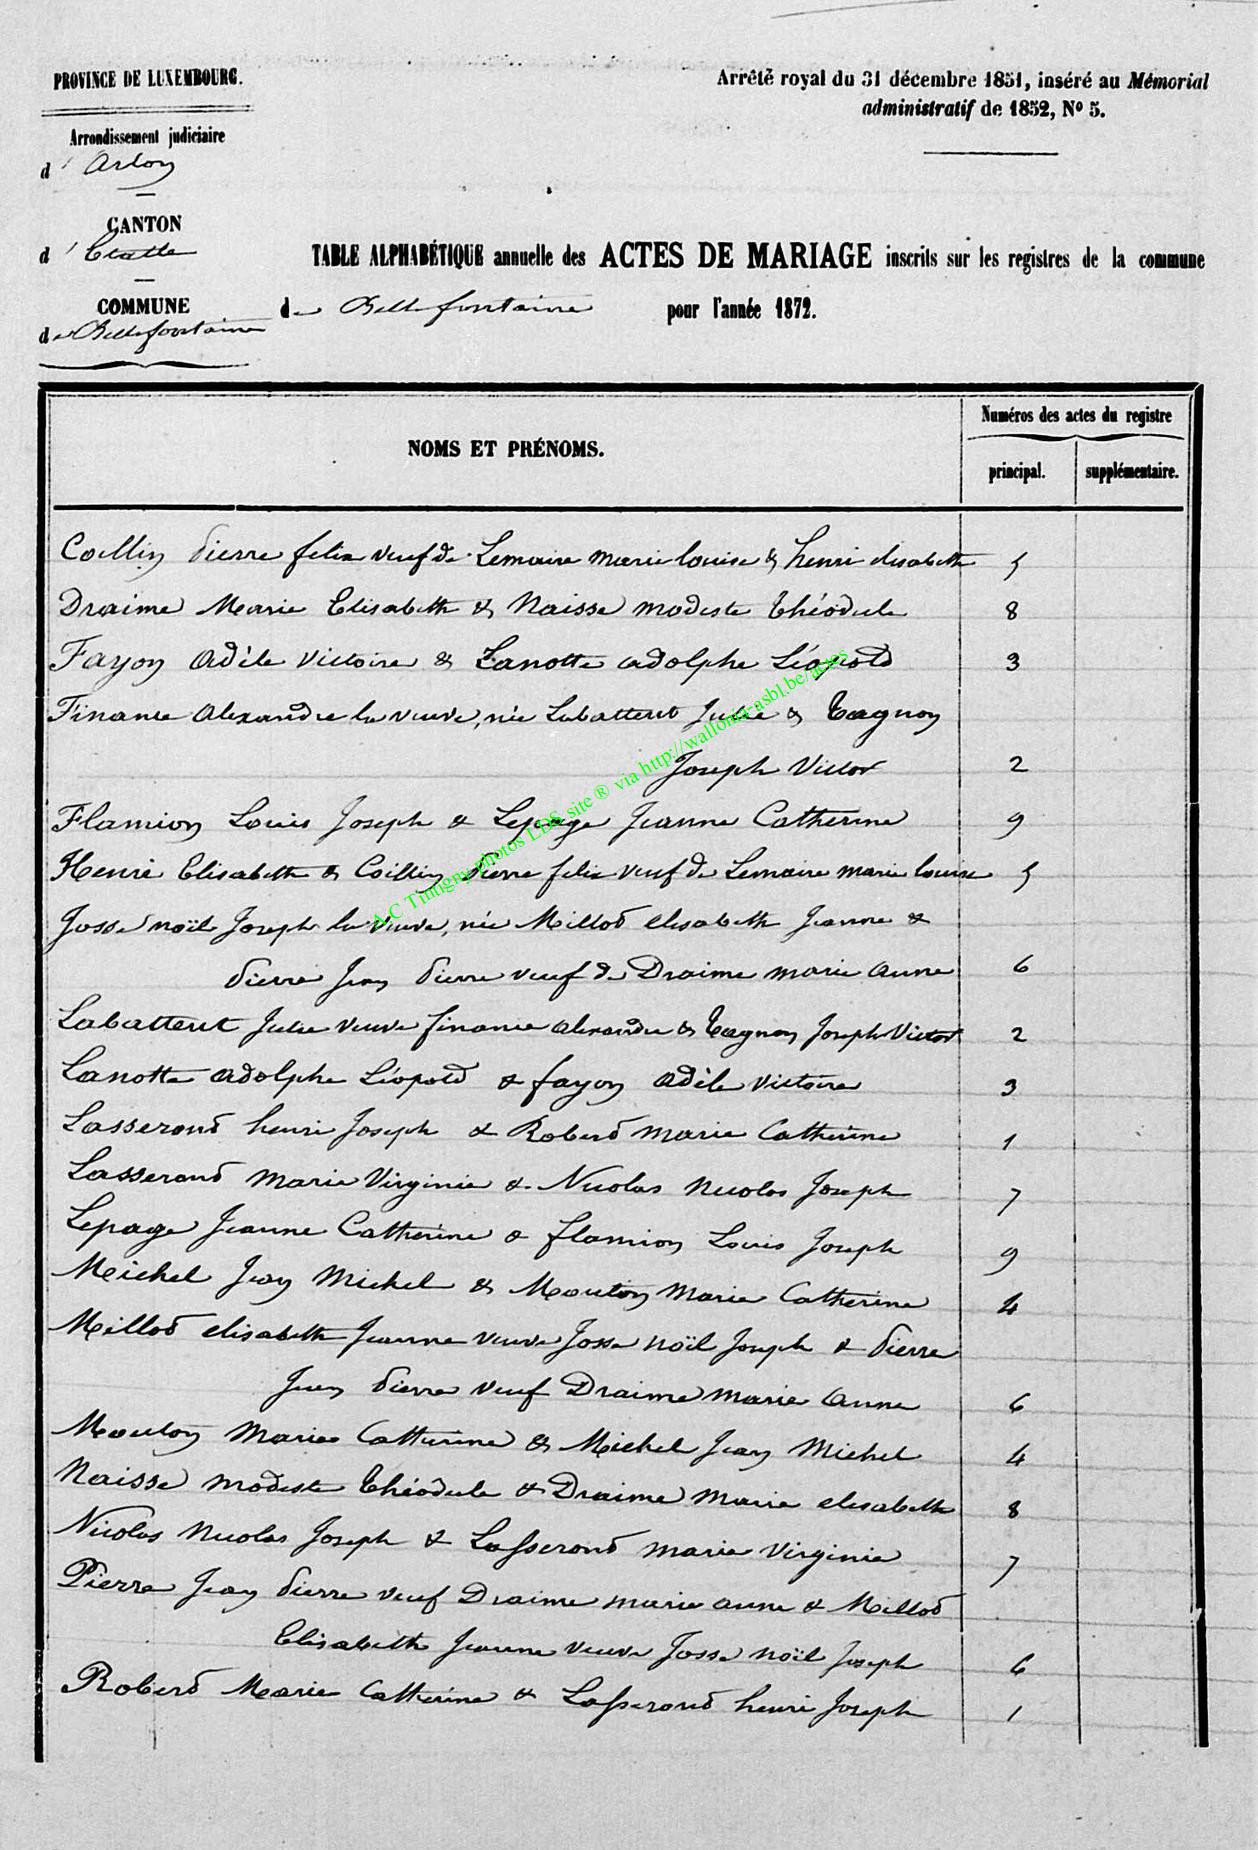 PROVINCE DE LUXEMBOURG.
Arrêté royal du 31 décembre 1851, inséré au Mémorial
administratif de 1852, Nº 5.
Arrondissement judiciaire
d'Arlon
CANTON
d'Etalle
COMMUNE
de Bellefontaine
TABLE ALPHABÉTIQUE annuelle des ACTES DE MARIAGE inscrits sur les registres de la commune
de Bellefontaine pour l'année 1872.
NOMS ET PRÉNOMS.
Numéros des actes du registre
principal. supplémentaire.
Collin Pierre felix veuf de Lemaire marie louise & henri elisabeth 5
Draime Marie Elisabeth & Naisse modeste Théodule 8
Fayon Adèle Victoire & Lanotte adolphe Léopold 3
Finance Alexandre la veuve, née Labatteut Julie & Tagnon
Joseph Victor 2
Flamion Louis Joseph & Lepage Jeanne Catherine 9
Henri Elisabeth & Collin Pierre felix veuf de Lemaire marie louise 5
Josse noël Joseph la veuve, née Millod elisabeth Jeanne &
Pierre Jean Pierre veuf de Draime marie anne 6
Labatteut Julie veuve finance alexandre & Tagnon Joseph Victor 2
Lanotte adolphe Léopold & fayon adèle victoire 3
Lasserond henri Joseph & Roberd marie Catherine 1
Lasserond marie Virginie & Nicolas nicolas Joseph 7
Lepage Jeanne Catherine & flamion Louis Joseph 9
Michel Jean Michel & Mouton Marie Catherine 4
Millod elisabeth Jeanne veuve Josse noël Joseph & Pierre
Jean Pierre veuf Draime marie anne 6
Mouton Marie Catherine & Michel Jean Michel 4
Naisse modeste Théodule & Draime marie elisabeth 8
Nicolas nicolas Joseph & Lasserond marie Virginie 7
Pierre Jean Pierre veuf Draime marie anne & Millod
Elisabeth Jeanne veuve Josse noël Joseph 6
Roberd Marie Catherine & Lasserond henri Joseph 1
A.C Tintigny photos LDS site ® via http://wallonia-asbl.be/actes